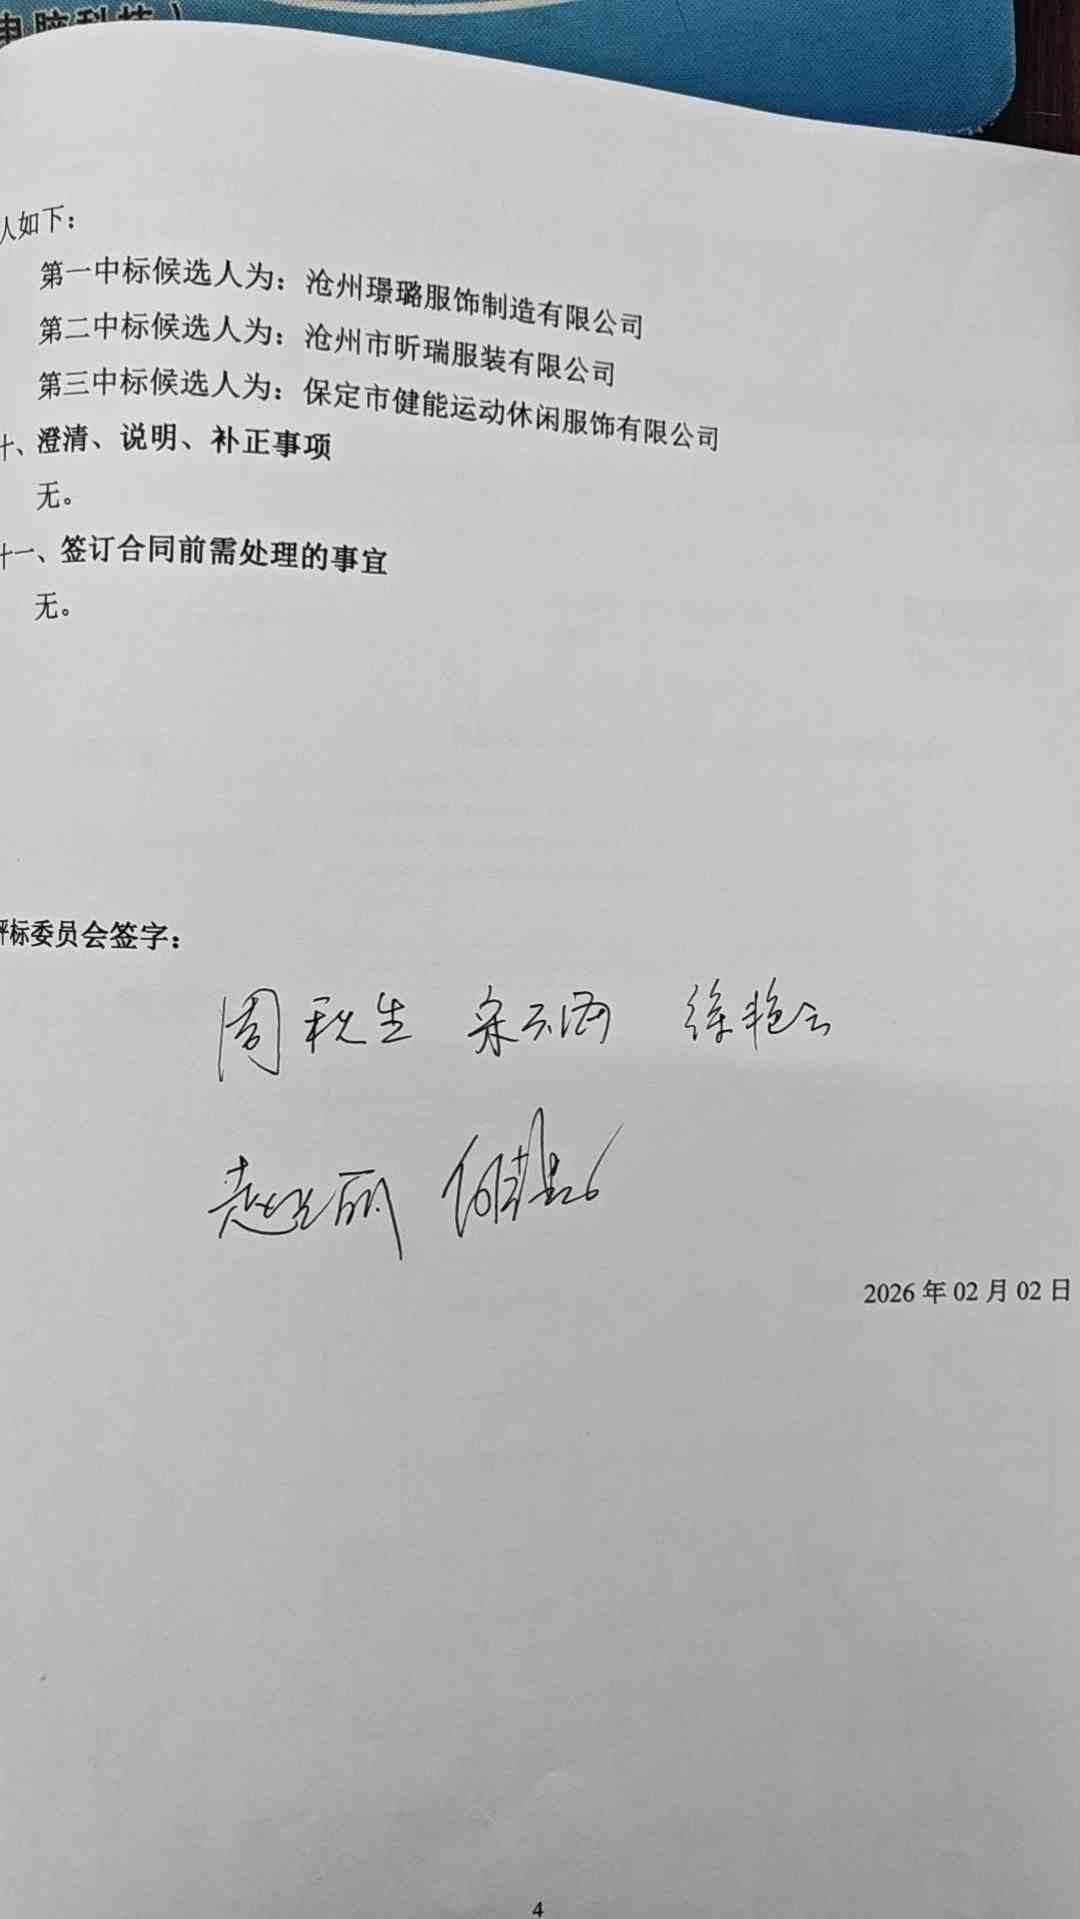 电脑科技）
人如下：
第一中标候选人为：沧州璟璐服饰制造有限公司
第二中标候选人为：沧州市昕瑞服装有限公司
第三中标候选人为：保定市健能运动休闲服饰有限公司
十、澄清、说明、补正事项
无。
十一、签订合同前需处理的事宜
无。
评标委员会签字：
周秋生 徐艳云
2026 年 02 月 02 日
4